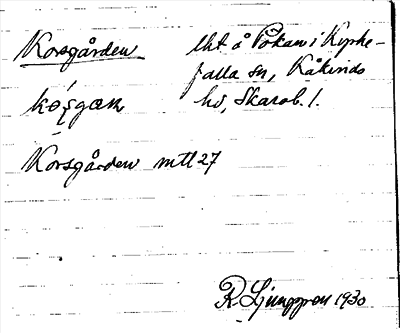 Korsgården
lht å Pökan i Kyrke-
falla sn, Kåkinds
hd, Skarab. l.
Korsgården mtl 27
R Ljunggren 1930